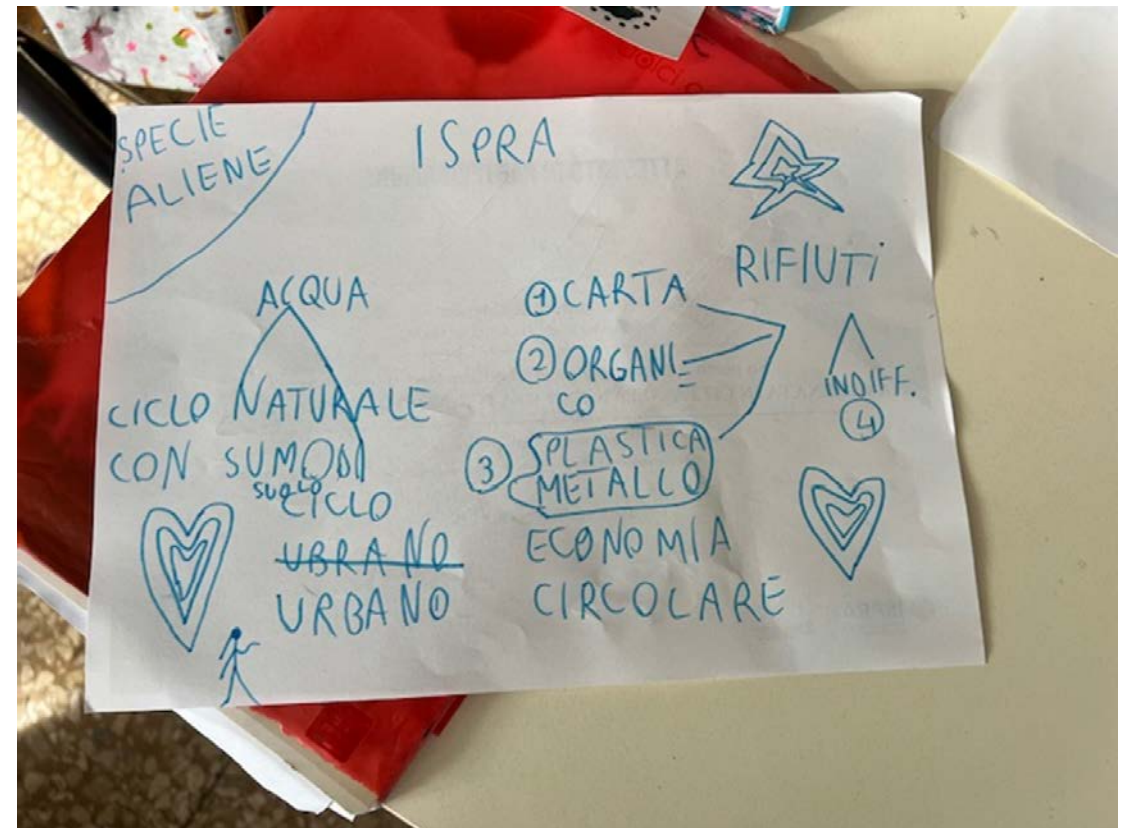 SPECIE
ALIENE
ISPRA
ACQUA
CICLO NATURALE
CON SUMO DI
SUOLO
CICLO
UBRANO
URBANO
RIFIUTI
① CARTA
② ORGANI
CO
③ SPLASTICA
METALLO
INDIFF.
④
ECONOMIA
CIRCOLARE